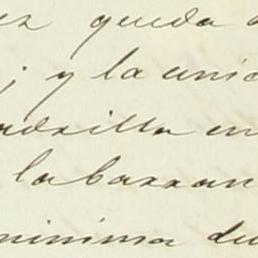 ez queda a
; y la unic
adrilla en
la barran
minima de